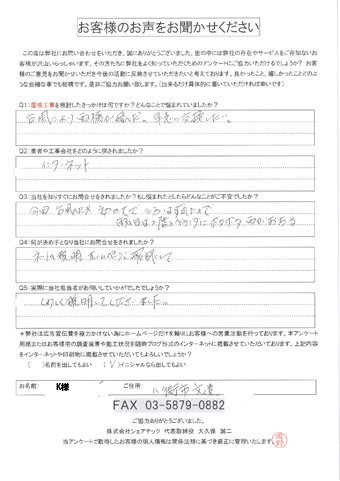 お客様のお声をお聞かせください
この度は弊社にお問い合わせをいただき、誠にありがとうございました。世の中には弊社の存在やサービスをご存知ないお
客様が沢山いらっしゃいます。その方たちに弊社をよく知っていただくためのアンケートにご協力いただけるでしょうか? お客
様のご意見をお聞かせいただき今後の活動に反映させていただきたいと考えております。良かったこと、嬉しかったことどのよ
うな些細な事でも結構です。是非ご協力お願い致します。(出来るだけ具体的に書いていただければ幸いです)
Q1:屋根工事を検討したきっかけは何ですか?どんなことで悩まれていましたか?
台風により雨樋が
Q2:業者や工事会社をどのように探されましたか?
インターネット
Q3:当社を知りすぐにお問合せをされましたか?もし悩まれたとしたらどんなことがご不安でしたか?
今回
Q4:何が決め手となり当社にお問合せをされましたか?
ネットの説明
Q5:実際に当社担当者がお伺いしていかがでしたでしょうか?
くわしく説明してくださいました。
*弊社は広告宣伝費を極力かけない為にホームページだけを頼りにお客様への営業活動を行っております。本アンケート
用紙またはお客様宅の調査風景や施工状況を随時ブログ形式のインターネットに掲載させていただいております。上記内容
をインターネットや印刷物に掲載させていただいてもよろしいでしょうか?
( )名前を出してもよい (✓)イニシャルなら出してもよい
お名前: K様 ご住所: 八街市文違
FAX 03-5879-0882
ご協力ありがとうございました。
株式会社シェアテック 代表取締役 大久保 誠二
当アンケートで取得したお客様の個人情報は関係法規に基づき厳正に管理いたします。